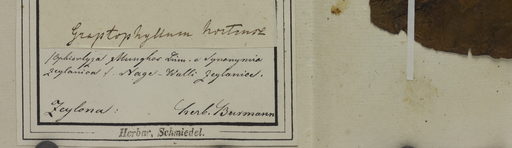 Graptophyllum hortense
(Ophioxyza Munghos Linn. e Synonymia
Zeylanica s. Nage-Walli Zeylanice.
Zeylona: herb. Burmann
Herbar. Schmiedel.